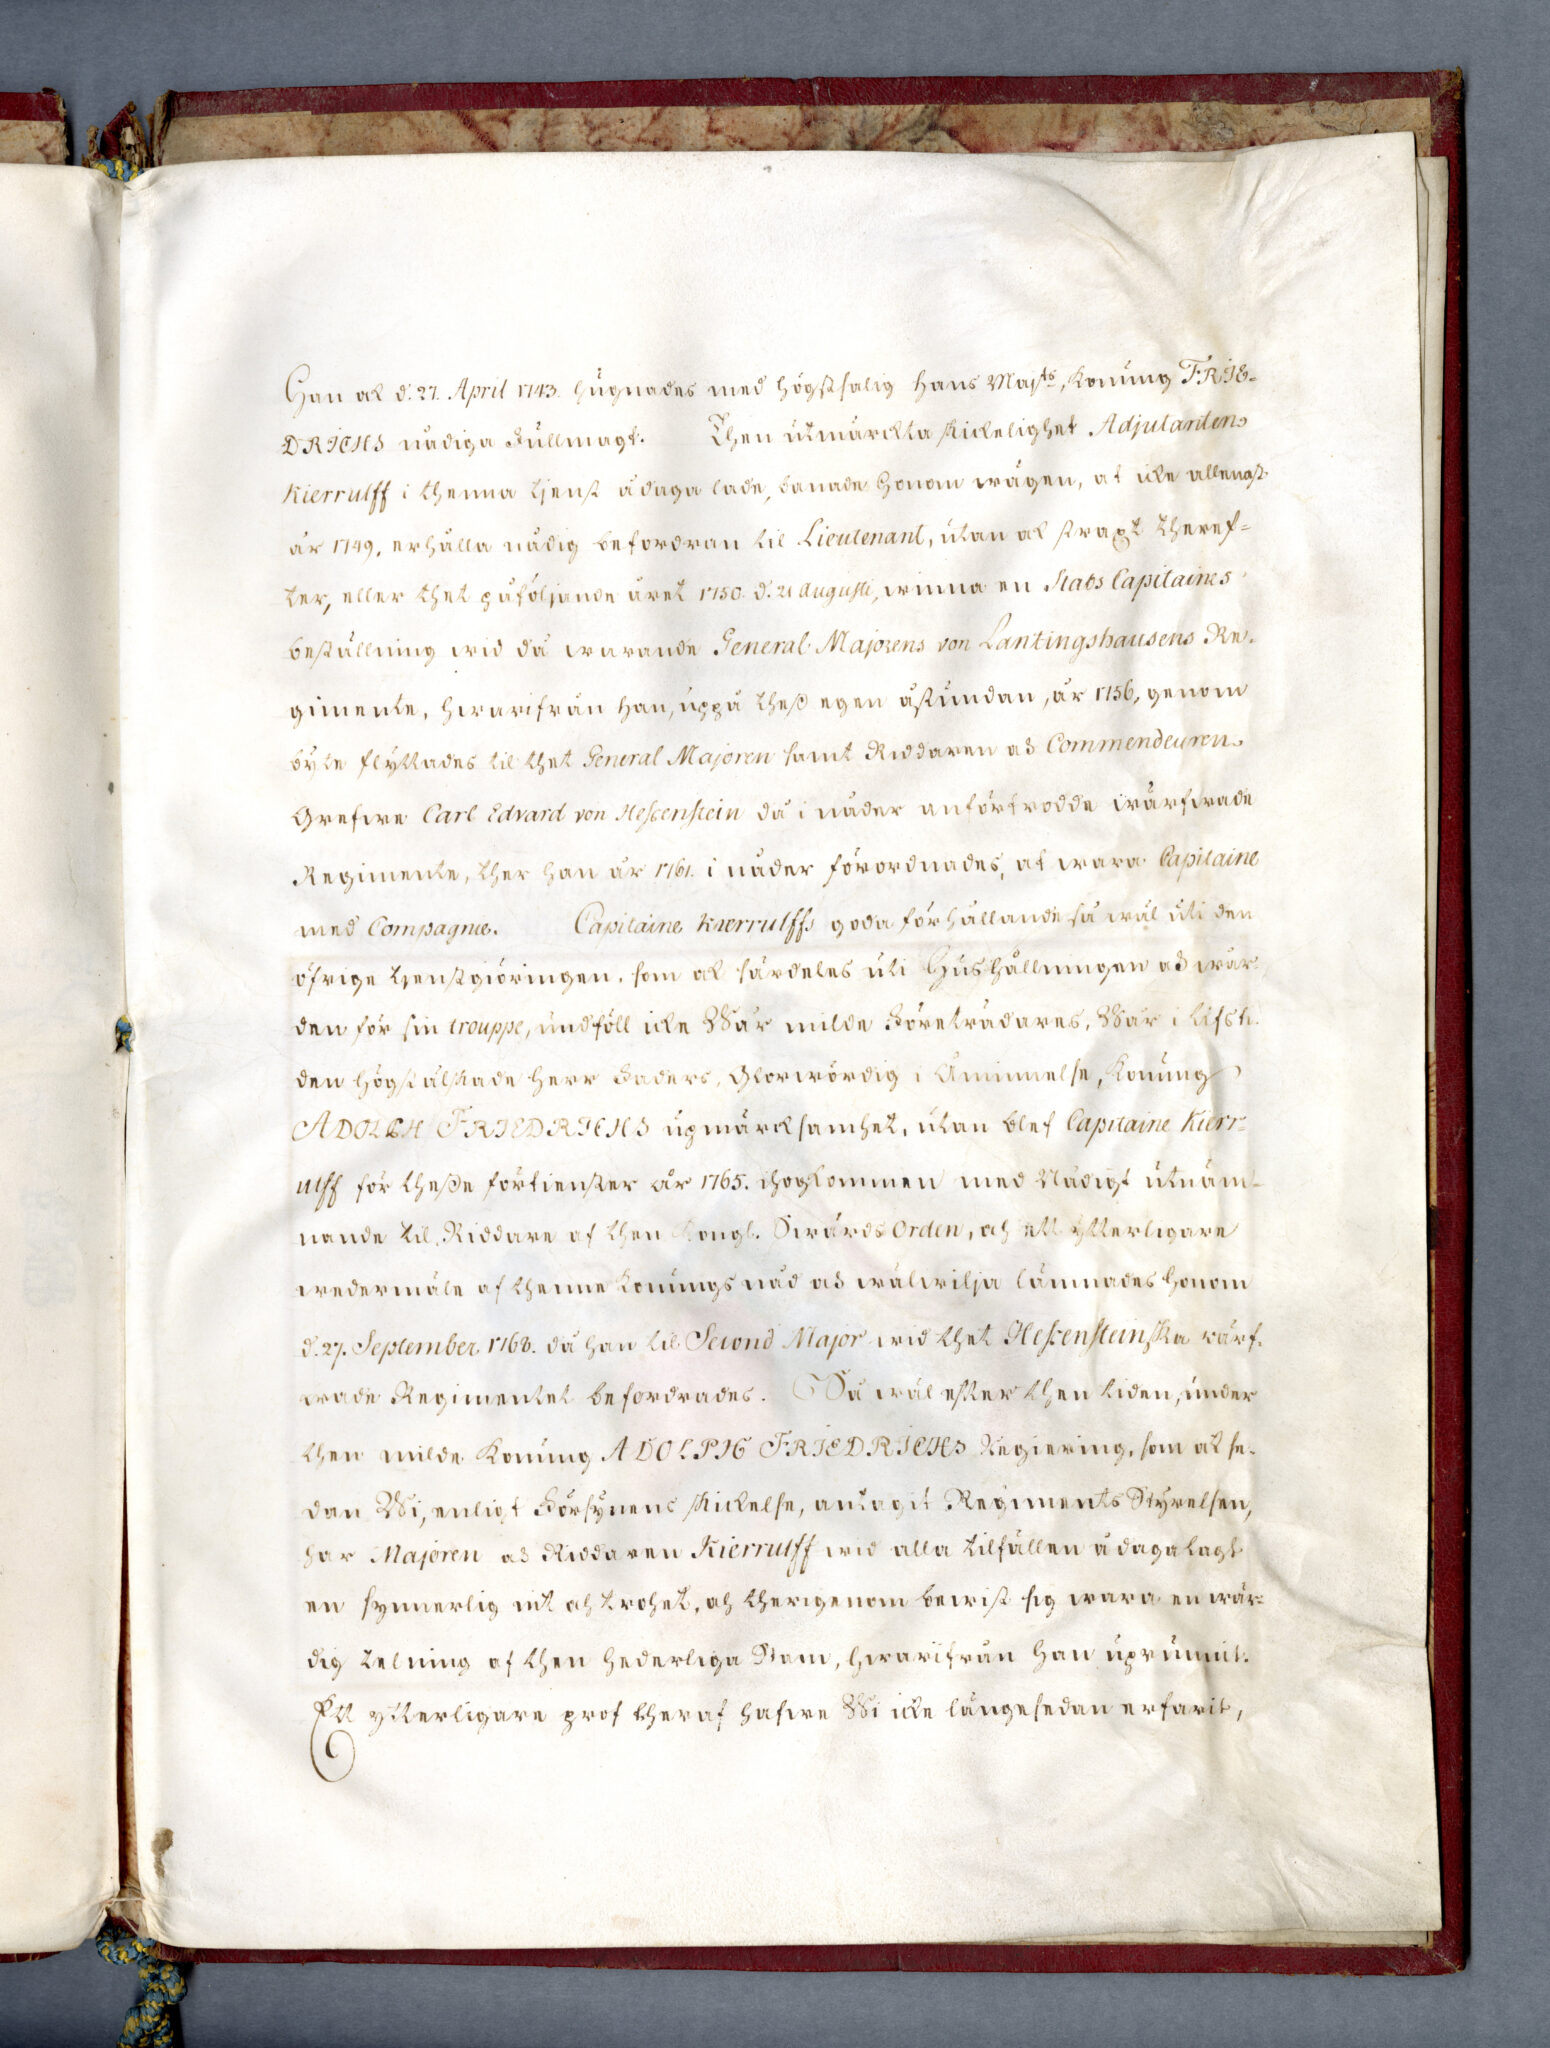 Han ock d. 27. April 1743. hugnades med högstsalig Hans Maj:ts, Konung FRIE-
DRICHS nådiga Fullmagt. Then utmärckta skickelighet Adjutanten
Kierrulff i thenna tjenst ådaga lade, banade Honom wägen, at icke allenast
år 1749. erhålla nådig befordran til Lieutenant, utan ock straxt theref-
ter, eller thet påföljande året 1750. d. 21 Augusti, winna en Stabs Capitaines
beställning wid då warande General Majorens von Lantingshausens Re-
gimente, hwarifrån han, uppå thess egen åstundan, år 1756, genom
byte flyttades til thet General Majoren samt Riddaren och Commendeuren
Grefwe Carl Edvard von Hessenstein då i nåder anförtrodde wärfwade
Regimente, ther han år 1761. i nåder förordnades, at wara Capitaine
med Compagnie. Capitaine Kierrulffs goda förhållande så wäl uti den
öfrige tjenstgiöringen, som ock särdeles uti Hushållningen och wår-
den för sin trouppe, undföll icke Wår milde Företrädares, Wår i lifsti-
den högstälskade Herr Faders, Glorwördig i Åminnelse, Konung
ADOLPH FRIEDRICHS upmärcksamhet, utan blef Capitaine Kierr-
ulff för thesse förtienster år 1765. ihogkommen med Nådigt utnäm-
nande til Riddare af then Kongl. Swärds Orden, och ett ytterligare
wedermäle af thenne Konungs nåd och wälwilja lämnades honom
d. 27. September 1768. då han til Second Major wid thet Hessensteinska wärf-
wade Regimentet befordrades. Så wäl efter then tiden, under
then milde Konung ADOLPH FRIEDRICHS Regiering, som ock se-
dan Wi, enligt Försynens skickelse, antagit Regiments Styrelsen,
har Majoren och Riddaren Kierrulff wid alla tilfällen ådagalagt
en synnerlig nit och trohet, och therigenom bewist sig wara en wär-
dig telning af then hederliga Stam, hwarifrån Han uprunnit.
Ett ytterligare prof theraf hafwe Wi icke längesedan erfarit,